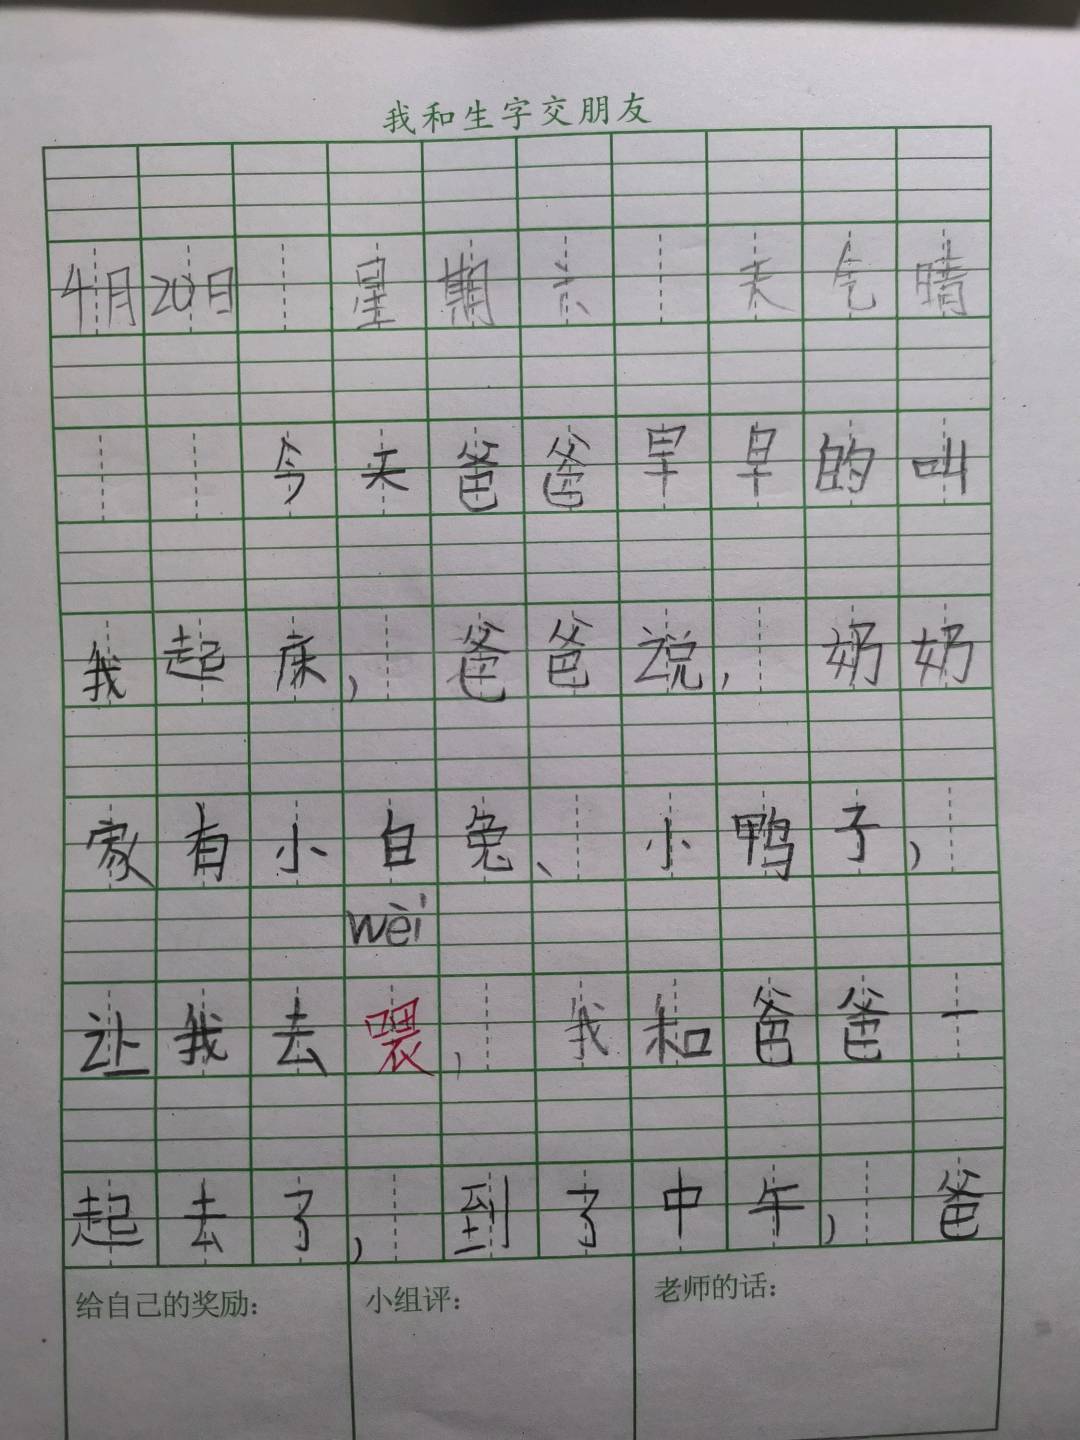 我和生字交朋友
4月20日 星期六 天气晴
今天爸爸早早的叫
我起床，爸爸说，奶奶
家有小白兔、小鸭子，
wèi
让我去喂，我和爸爸一
起去了，到了中午，爸
给自己的奖励：
小组评：
老师的话：